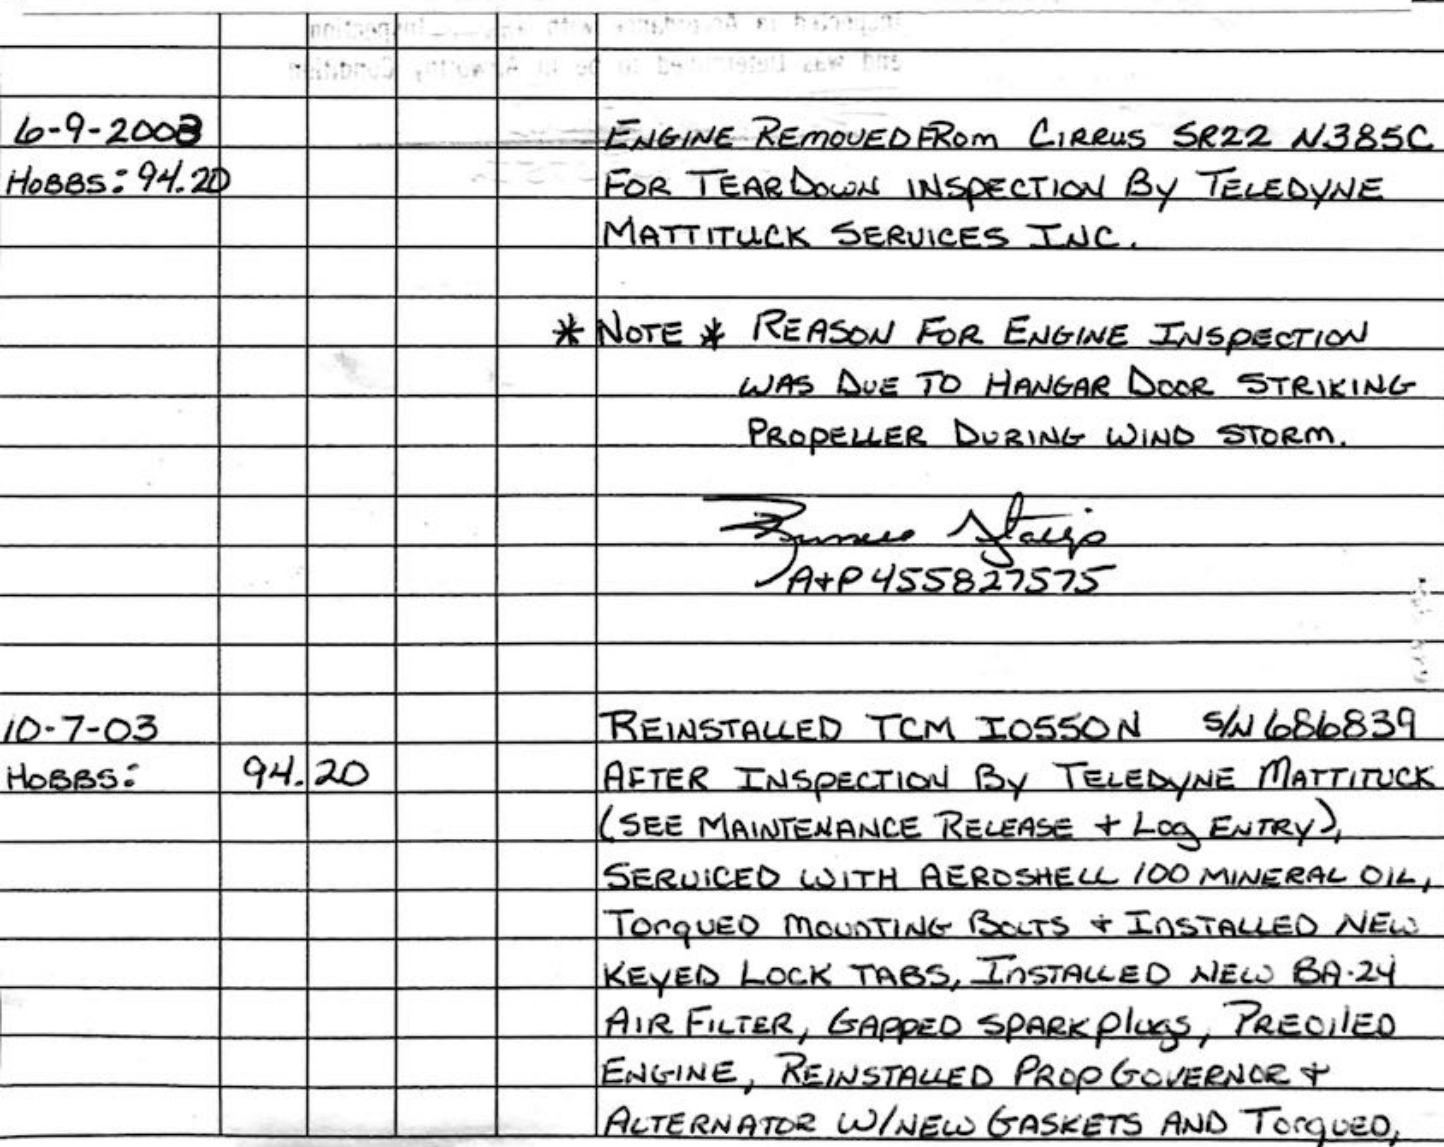 6-9-2003
ENGINE REMOVED FROM CIRRUS SR22 N385C
HOBBS: 94.20
FOR TEAR DOWN INSPECTION BY TELEDYNE
MATTITUCK SERVICES INC.
* NOTE * REASON FOR ENGINE INSPECTION
WAS DUE TO HANGAR DOOR STRIKING
PROPELLER DURING WIND STORM.
A+P 455827575
10-7-03
REINSTALLED TCM IO550N S/N 686839
HOBBS: 94.20
AFTER INSPECTION BY TELEDYNE MATTITUCK
(SEE MAINTENANCE RELEASE + LOG ENTRY),
SERVICED WITH AEROSHELL 100 MINERAL OIL,
TORQUED MOUNTING BOLTS + INSTALLED NEW
KEYED LOCK TABS, INSTALLED NEW BA-24
AIR FILTER, GAPPED SPARK PLUGS, PREOILED
ENGINE, REINSTALLED PROP GOVERNOR +
ALTERNATOR W/NEW GASKETS AND TORQUED,